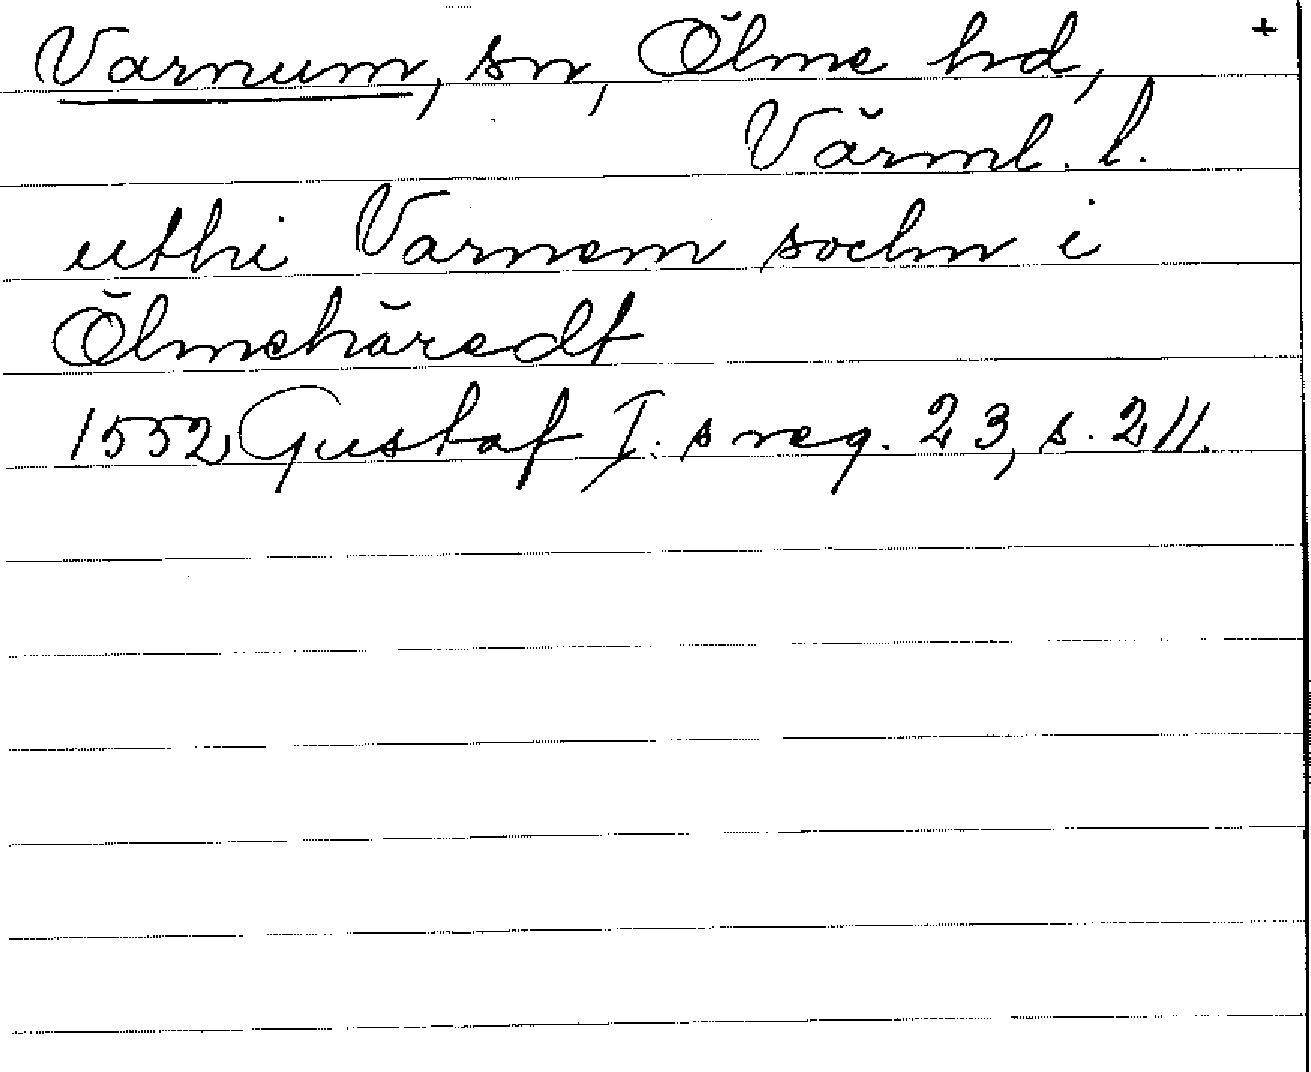 Varnum, sn, Ölme hd, +
Värml. l.
uthi Varnem sochn i
Ölmehäredt
1552 Gustaf I:s reg. 23, s. 211.